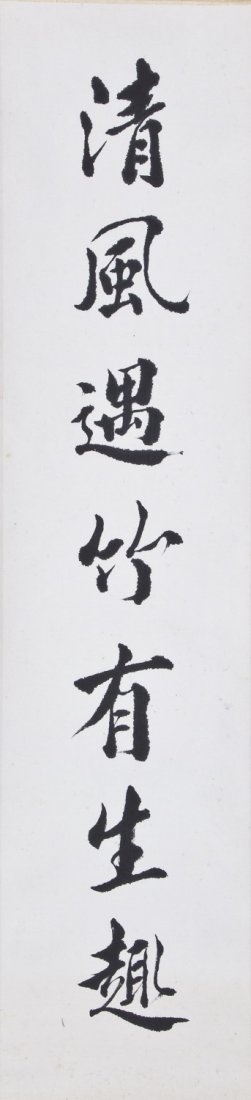 清風遇竹有生趣